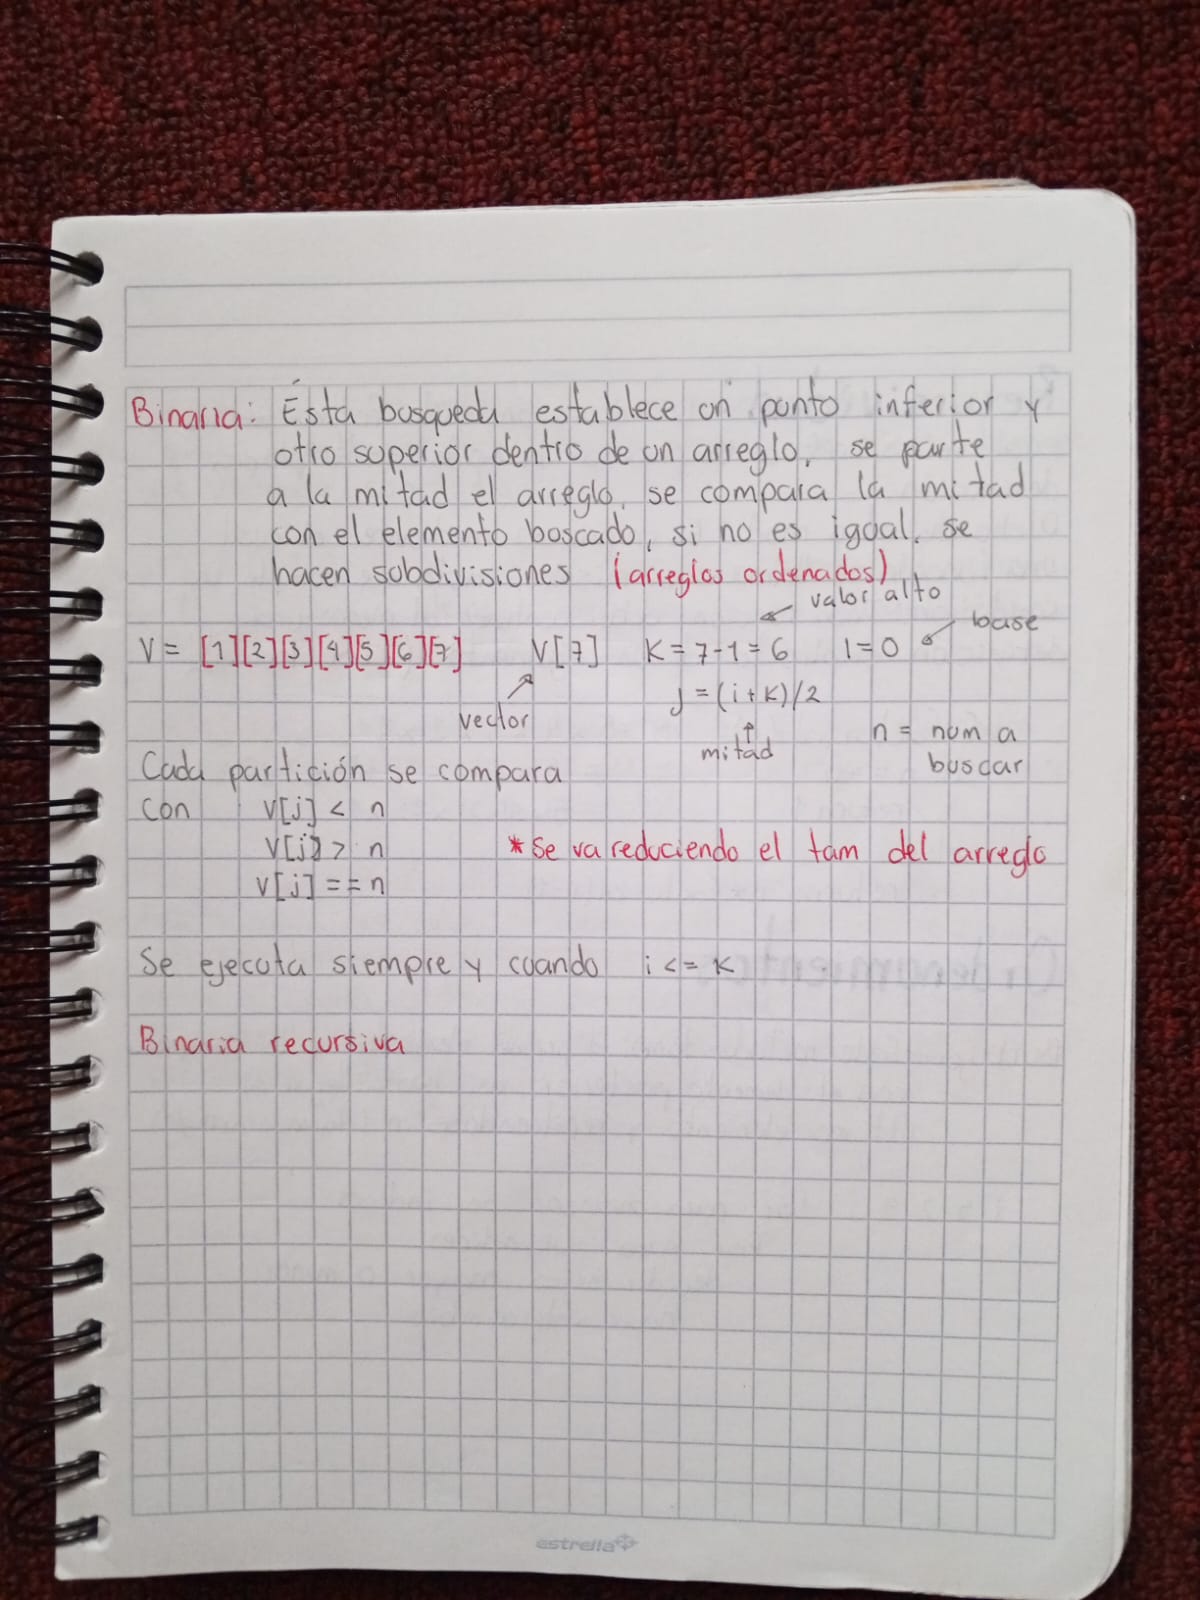 Binaria: Ésta busqueda establece un punto inferior y
otro superior dentro de un arreglo, se parte
a la mitad el arreglo, se compara la mitad
con el elemento buscado, si no es igual, se
hacen subdivisiones (arreglos ordenados)
valor alto
base
V = [1][2][3][4][5][6][7] V[7] K = 7-1 = 6 I = 0
j = (i + K)/2
vector
mitad
n = num a
buscar
Cada partición se compara
con V[j] < n
V[j] > n *Se va reduciendo el tam del arreglo
V[j] == n
Se ejecuta siempre y cuando i <= K
Binaria recursiva
estrella